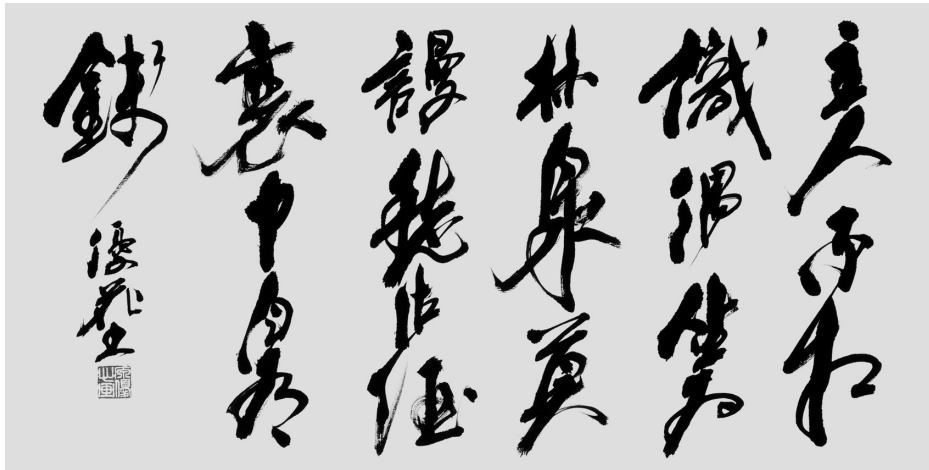 主人不相
識偶坐為
林泉莫
謾愁沽酒
囊中自有
錢